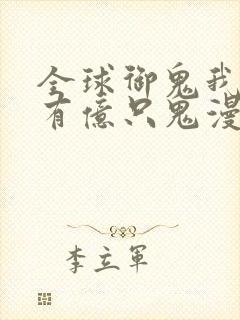 全球御鬼我
有億只鬼漫
李立軍